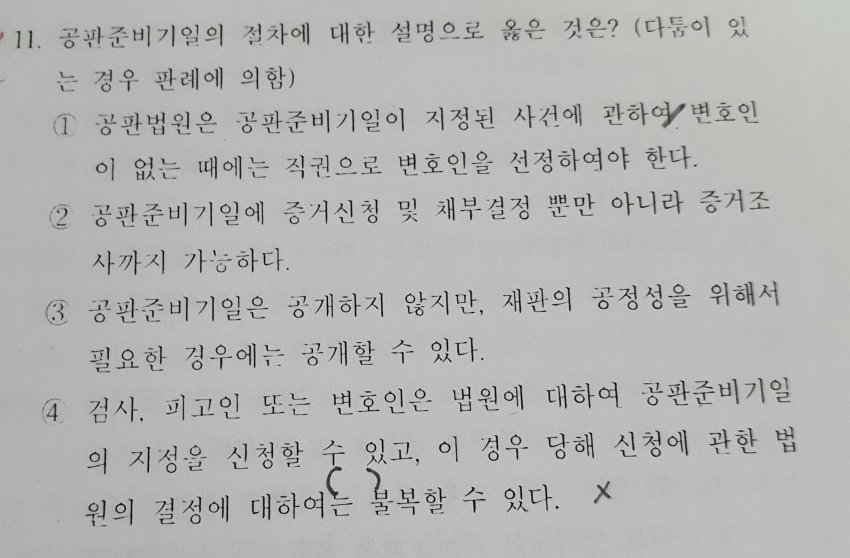 11. 공판준비기일의 절차에 대한 설명으로 옳은 것은? (다툼이 있
는 경우 판례에 의함)
① 공판법원은 공판준비기일이 지정된 사건에 관하여 변호인
이 없는 때에는 직권으로 변호인을 선정하여야 한다.
② 공판준비기일에 증거신청 및 채부결정 뿐만 아니라 증거조
사까지 가능하다.
③ 공판준비기일은 공개하지 않지만, 재판의 공정성을 위해서
필요한 경우에는 공개할 수 있다.
④ 검사, 피고인 또는 변호인은 법원에 대하여 공판준비기일
의 지정을 신청할 수 있고, 이 경우 당해 신청에 관한 법
원의 결정에 대하여는 불복할 수 있다. X